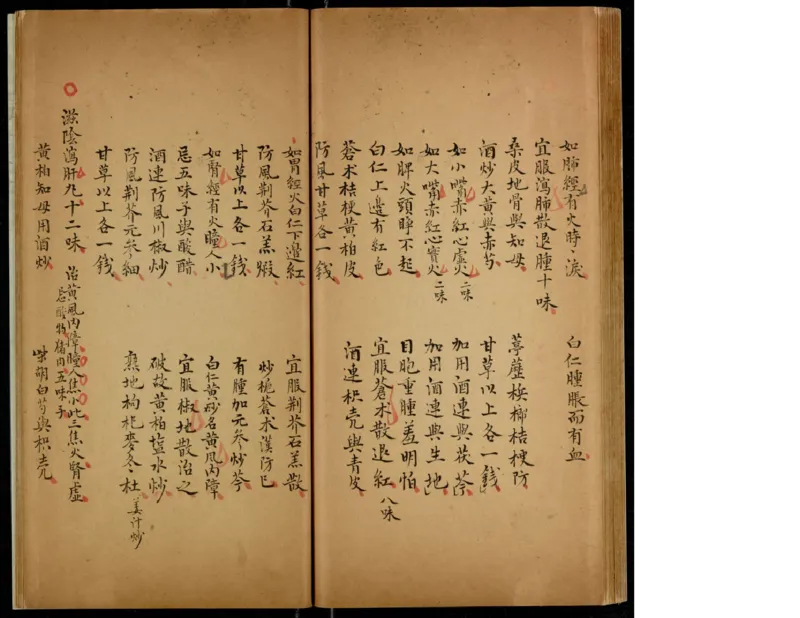 如肺經有火時淚 白仁腫脹而有血
宜服瀉肺散退腫十味
桑皮地骨與知母 葶藶梹榔桔梗防
酒炒大黃與赤芍 甘草以上各一錢
如小嘴赤紅心虛火二味 加用酒連與茯苓
如大嘴赤紅心實火二味 加用酒連與生地
如脾火頭睜不起 目胞重腫羞明怕
白仁上邊有紅色 宜服蒼术散退紅八味
蒼术桔梗黃柏皮 酒連枳壳與青皮
防風甘草各一錢
如胃經火白仁下邊紅 宜服荆芥石羔散
防風荆芥石羔煅 炒梔蒼术漢防已
甘草以上各一錢 有腫加元參炒芩
如腎經有火瞳人小 白仁黃砂名黃風內障
忌五味子與酸醋 宜服椒地散治之
酒連防風川椒炒 破故黃柏塩水炒
防風荆芥元參細 熟地枸杞麥冬杜姜汁炒
甘草以上各一錢
滋陰瀉肝丸十二味 治黃風內障瞳人焦小此三焦火腎虛
忌酸物猪肉五味子
黃柏知母用酒炒 柴胡白芍與枳壳